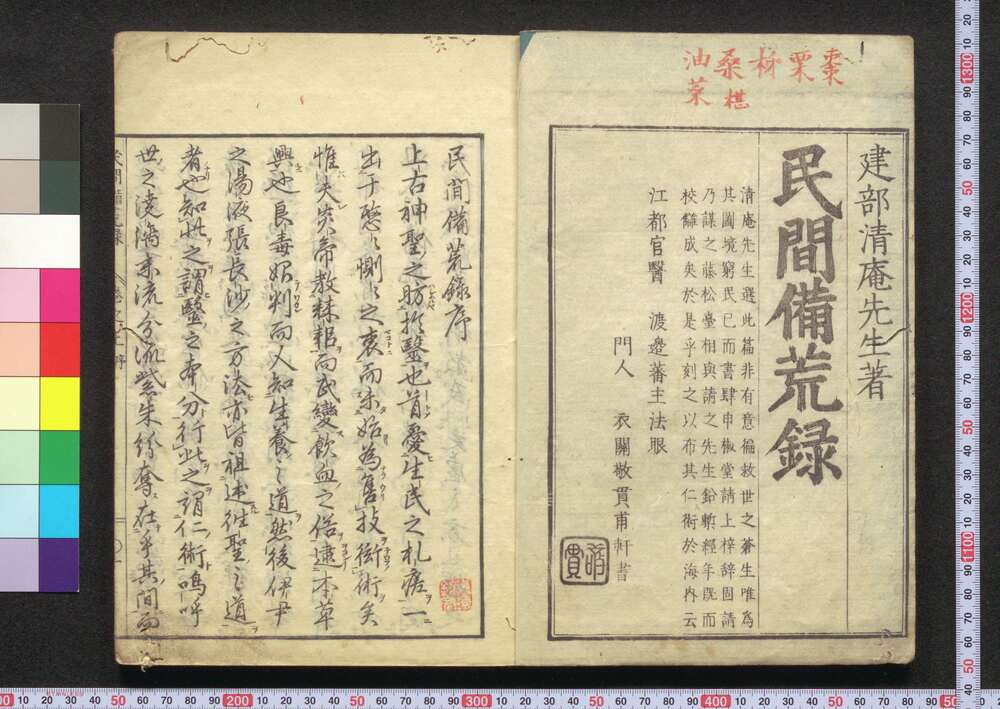 棗
栗
柹
桑椹
油菜
建部清庵先生著
民間備荒録
清庵先生選此篇非有意徧救世之蒼生唯為
其圖境窮民已而書肆申椒堂請上梓辞固請
乃謀之藤松臺相與請之先生鉛槧經年既而
校讎成矣於是乎刻之以布其仁術於海内云
江都官醫 渡邉蕃主法眼
門人 衣關敬貫甫軒書
民間備荒録序
上古神聖之肪於醫也首愛生民之札瘥一
出于慇〻惻〻之衷而未始為售技衒術矣
惟夫炎帝教稼穡而民變飲血之俗逮本草
興也良毒始判而人知生養之道然後伊尹
之湯液張長沙之方法亦皆祖述徃聖之道
者也知此之謂醫之本分行此之謂仁術嗚呼
世之澆漓末流分派紫朱紛奪在乎其間而